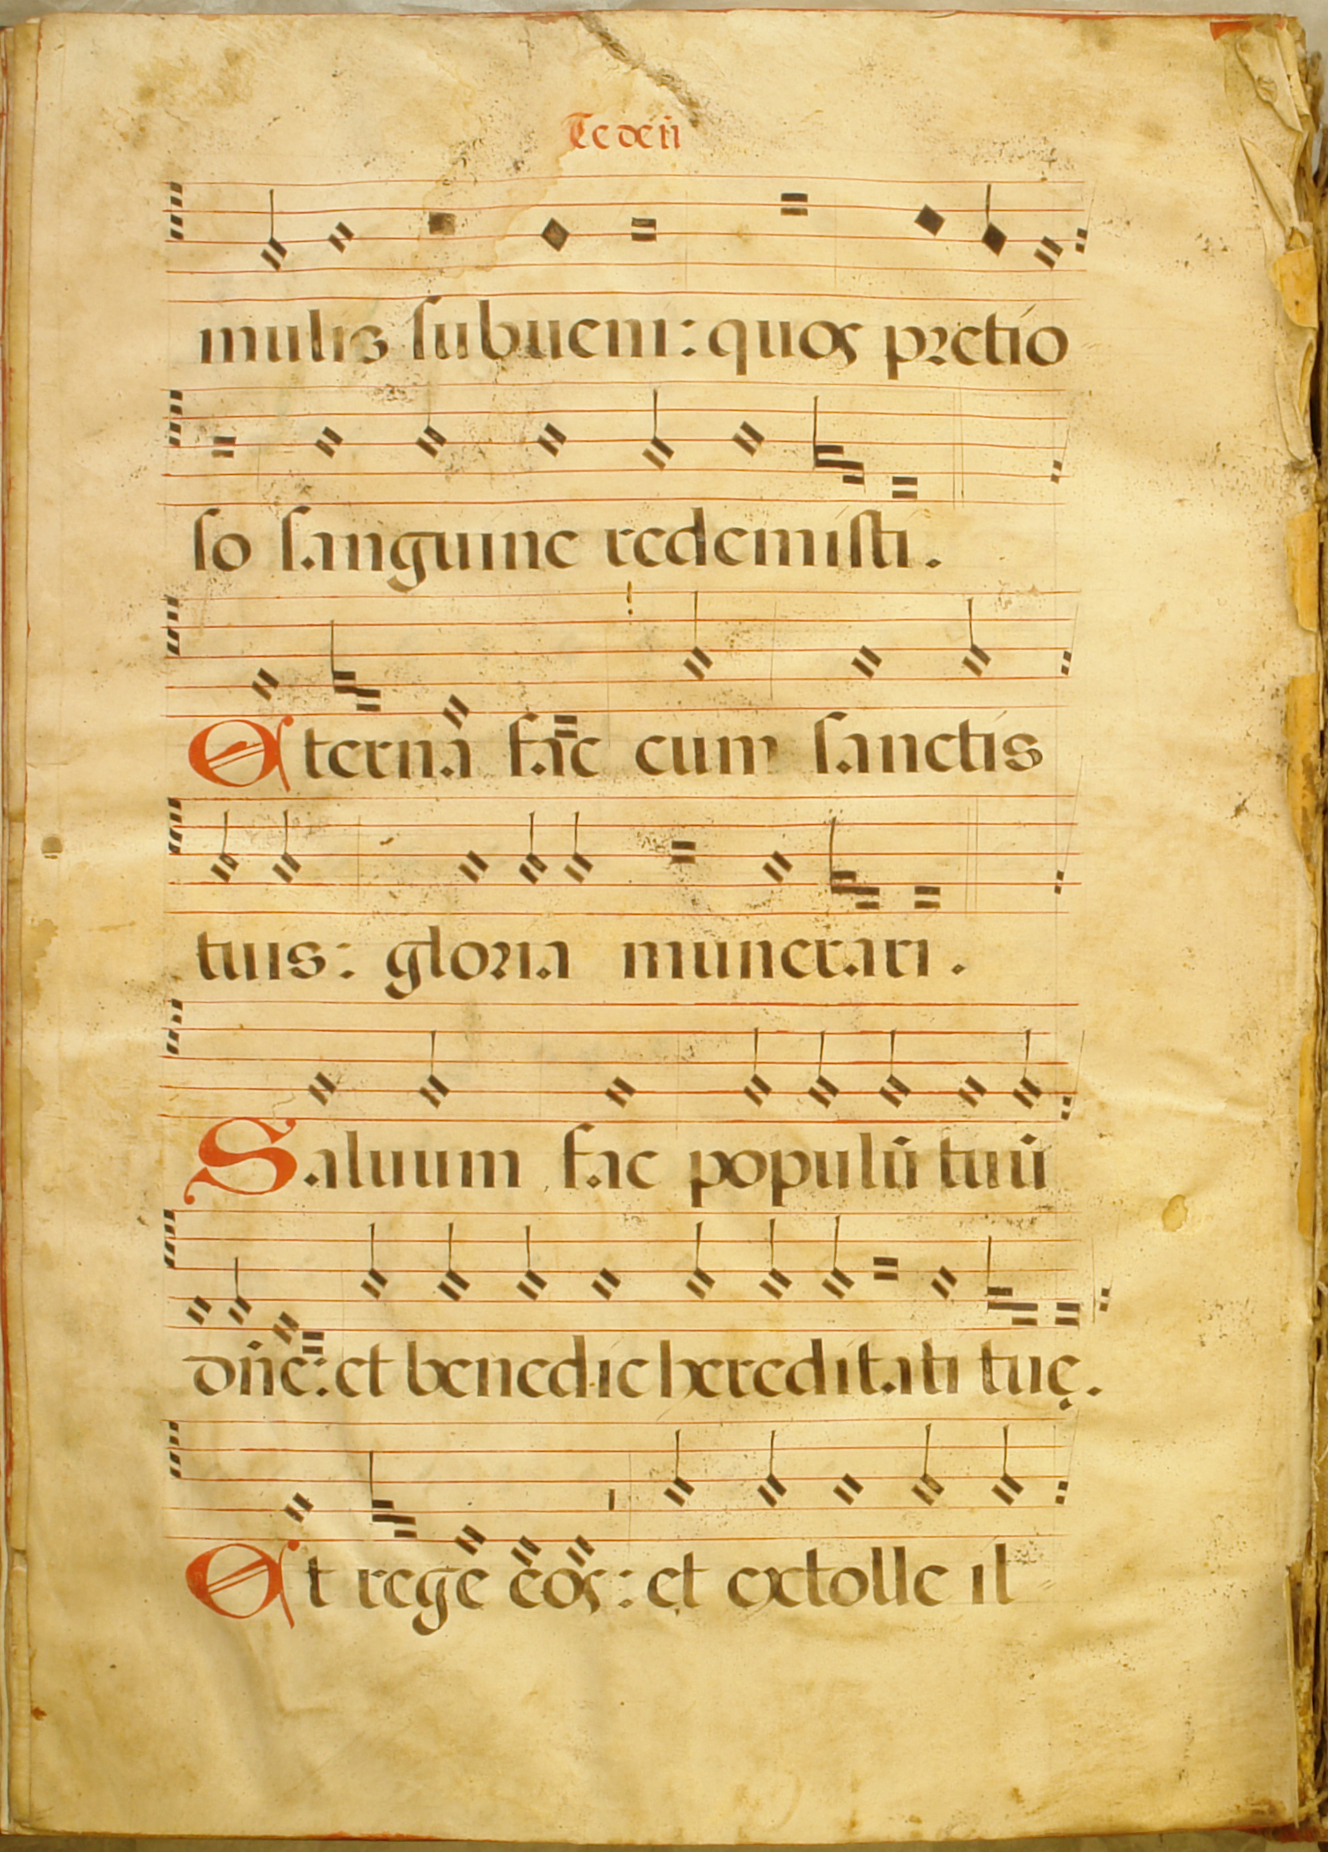 Te deū
mulis subueni: quos pretio
so sanguine redemisti.
Eterna fac cum sanctis
tuis: gloria munerari.
Saluum fac populū tuū
dn̄e: et benedic hereditati tuę.
Et rege eos: et extolle il